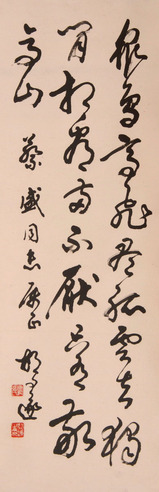 眾鳥高飛盡孤雲去獨
閒相看兩不厭只有敬
亭山 蔡盛同志属正 胡问遂